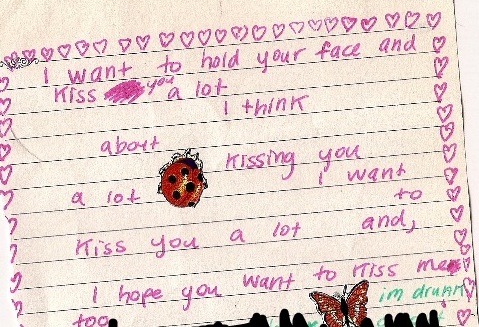 I want to hold your face and
kiss you a lot
I think
about
kissing you
I want
a lot
to
kiss you a lot and,
I hope you want to kiss me
im drunk
too